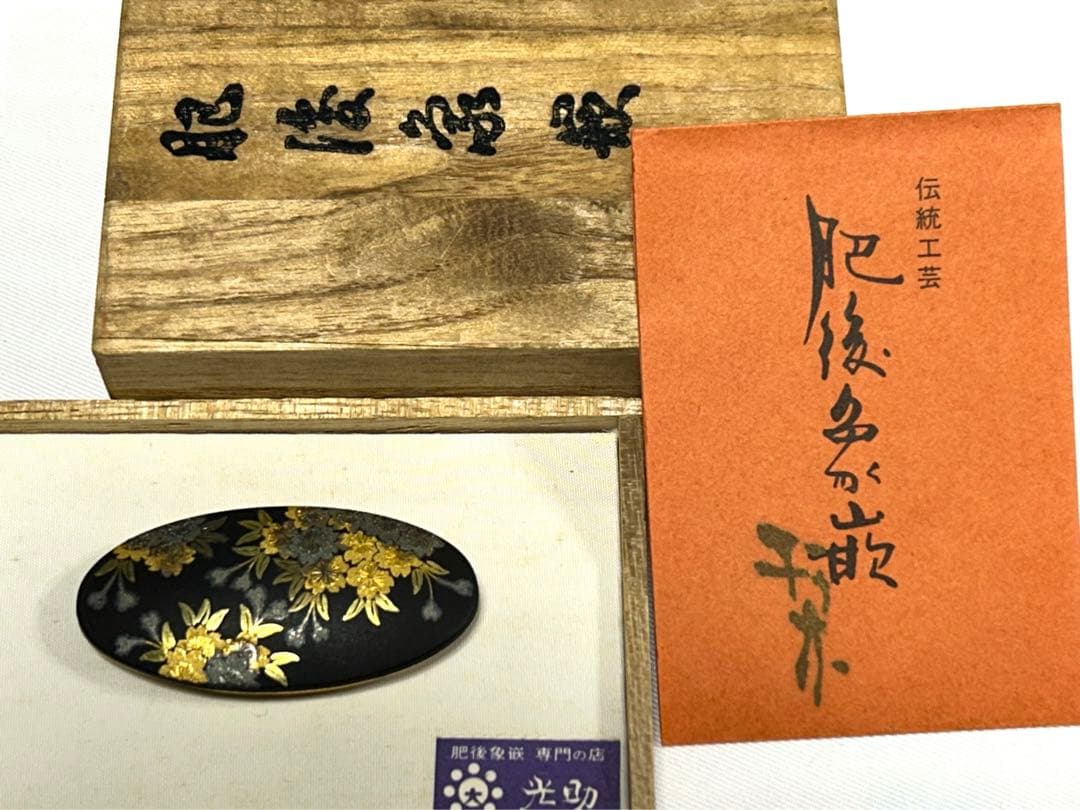 肥後象嵌
伝統工芸
肥後象嵌
肥後象嵌 専門の店
大
光助